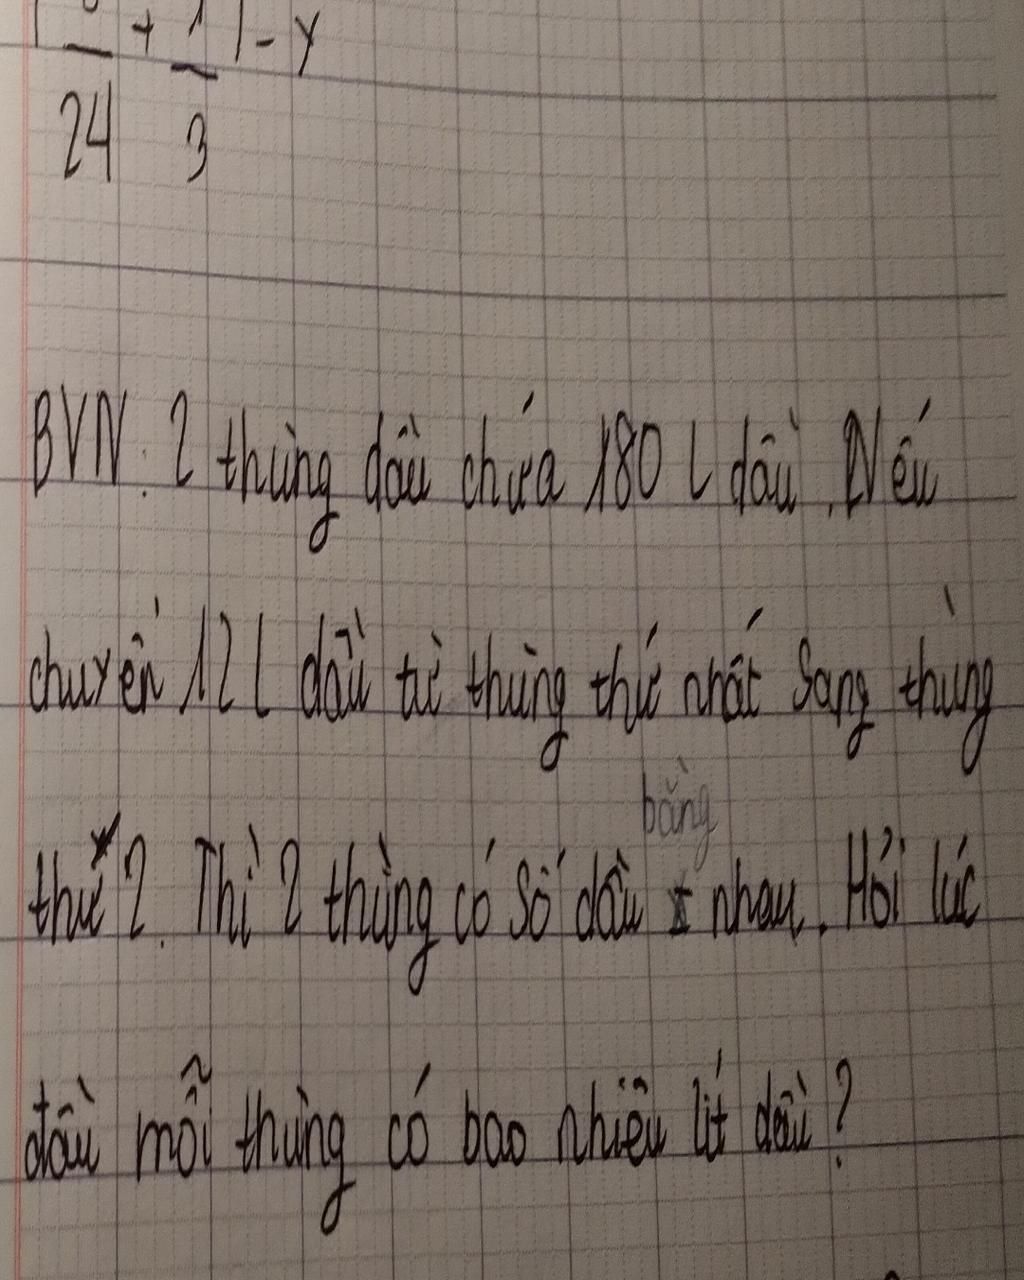 + 1 ) - y
24 3
BVN: 2 thùng dầu chứa 180 l dầu. Nếu
chuyển 12 l dầu từ thùng thứ nhất sang thùng
thứ 2. Thì 2 thùng có số dầu bằng nhau. Hỏi lúc
đầu mỗi thùng có bao nhiêu lít dầu?